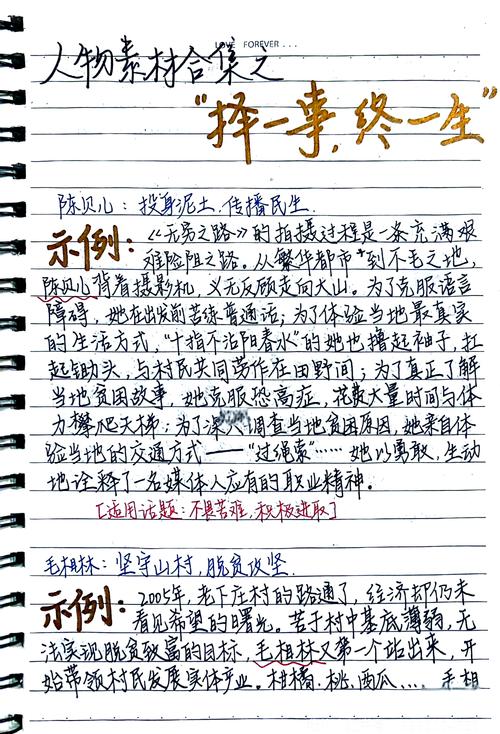 LOVE FOREVER ...
人物素材合集之
“择一事,终一生”
陈贝儿:投身泥土,传播民生
示例:《无穷之路》的拍摄过程是一条充满艰
难险阻之路。从繁华都市到不毛之地,
陈贝儿背着摄影机,义无反顾走向大山。为了克服语言
障碍,她在出发前苦练普通话;为了体验当地最真实
的生活方式,“十指不沾阳春水”的她也撸起袖子,扛
起锄头,与村民共同劳作在田野间;为了真正了解
当地贫困故事,她克服恐高症,花费大量时间与体
力攀爬天梯;为了深入调查当地贫困原因,她亲自体
验当地的交通方式——“过绳索”……她以勇敢,生动
地诠释了一名媒体人应有的职业精神。
[适用话题:不畏苦难,积极进取]
毛相林:坚守山村,脱贫攻坚
示例:2005年,老下庄村的路通了,经济却仍未
看见希望的曙光。苦于村中基底薄弱,无
法实现脱贫致富的目标,毛相林又第一个站出来,开
始带领村民发展实体产业。柑橘、桃、西瓜……毛相